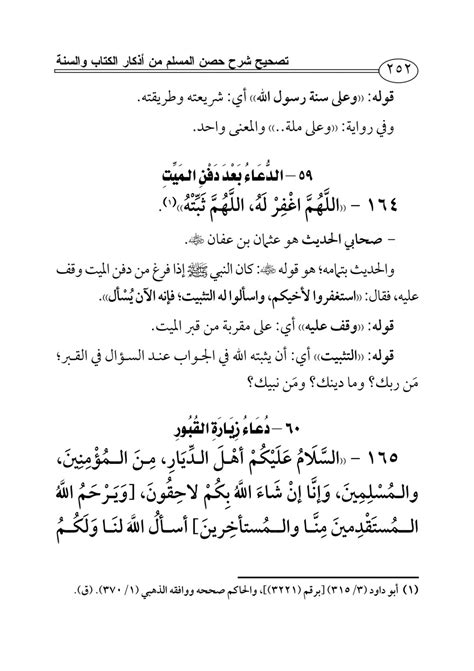 تصحيح شرح حصن المسلم من أذكار الكتاب والسنة
٢٥٢
قوله: «وعلى سنة رسول الله» أي: شريعته وطريقته.
وفي رواية: «وعلى ملة..» والمعنى واحد.
٥٩ – الدُّعَاءُ بَعْدَ دَفْنِ المَيِّتِ
١٦٤ – «اللَّهُمَّ اغْفِرْ لَهُ، اللَّهُمَّ ثَبِّتْهُ»(١).
– صحابي الحديث هو عثمان بن عفان ﷺ.
والحديث بتمامه؛ هو قوله ﷺ: كان النبي ﷺ إذا فرغ من دفن الميت وقف
عليه، فقال: «استغفروا لأخيكم، واسألوا له التثبيت؛ فإنه الآن يُسْأل».
قوله: «وقف عليه» أي: على مقربة من قبر الميت.
قوله: «التثبيت» أي: أن يثبته الله في الجواب عند السؤال في القبر؛
مَن ربك؟ وما دينك؟ ومَن نبيك؟
٦٠ – دُعَاءُ زِيَارَةِ القُبُورِ
١٦٥ – «السَّلَامُ عَلَيْكُمْ أَهْلَ الدِّيَارِ، مِنَ الـمُؤْمِنِينَ،
والـمُسْلِمِينَ، وَإِنَّا إنْ شَاءَ اللَّهُ بِكُمْ لاحِقُونَ، [وَيَـرْحَمُ اللَّهُ
الـمُسْتَقْدِمينَ مِنَّـا والـمُستأخِرينَ] أسـألُ اللَّهَ لنَـا وَلَكُـمُ
(١) أبو داود (٣/ ٣١٥) [برقم (٣٢٢١)]، والحاكم صححه ووافقه الذهبي (١/ ٣٧٠). (ق).